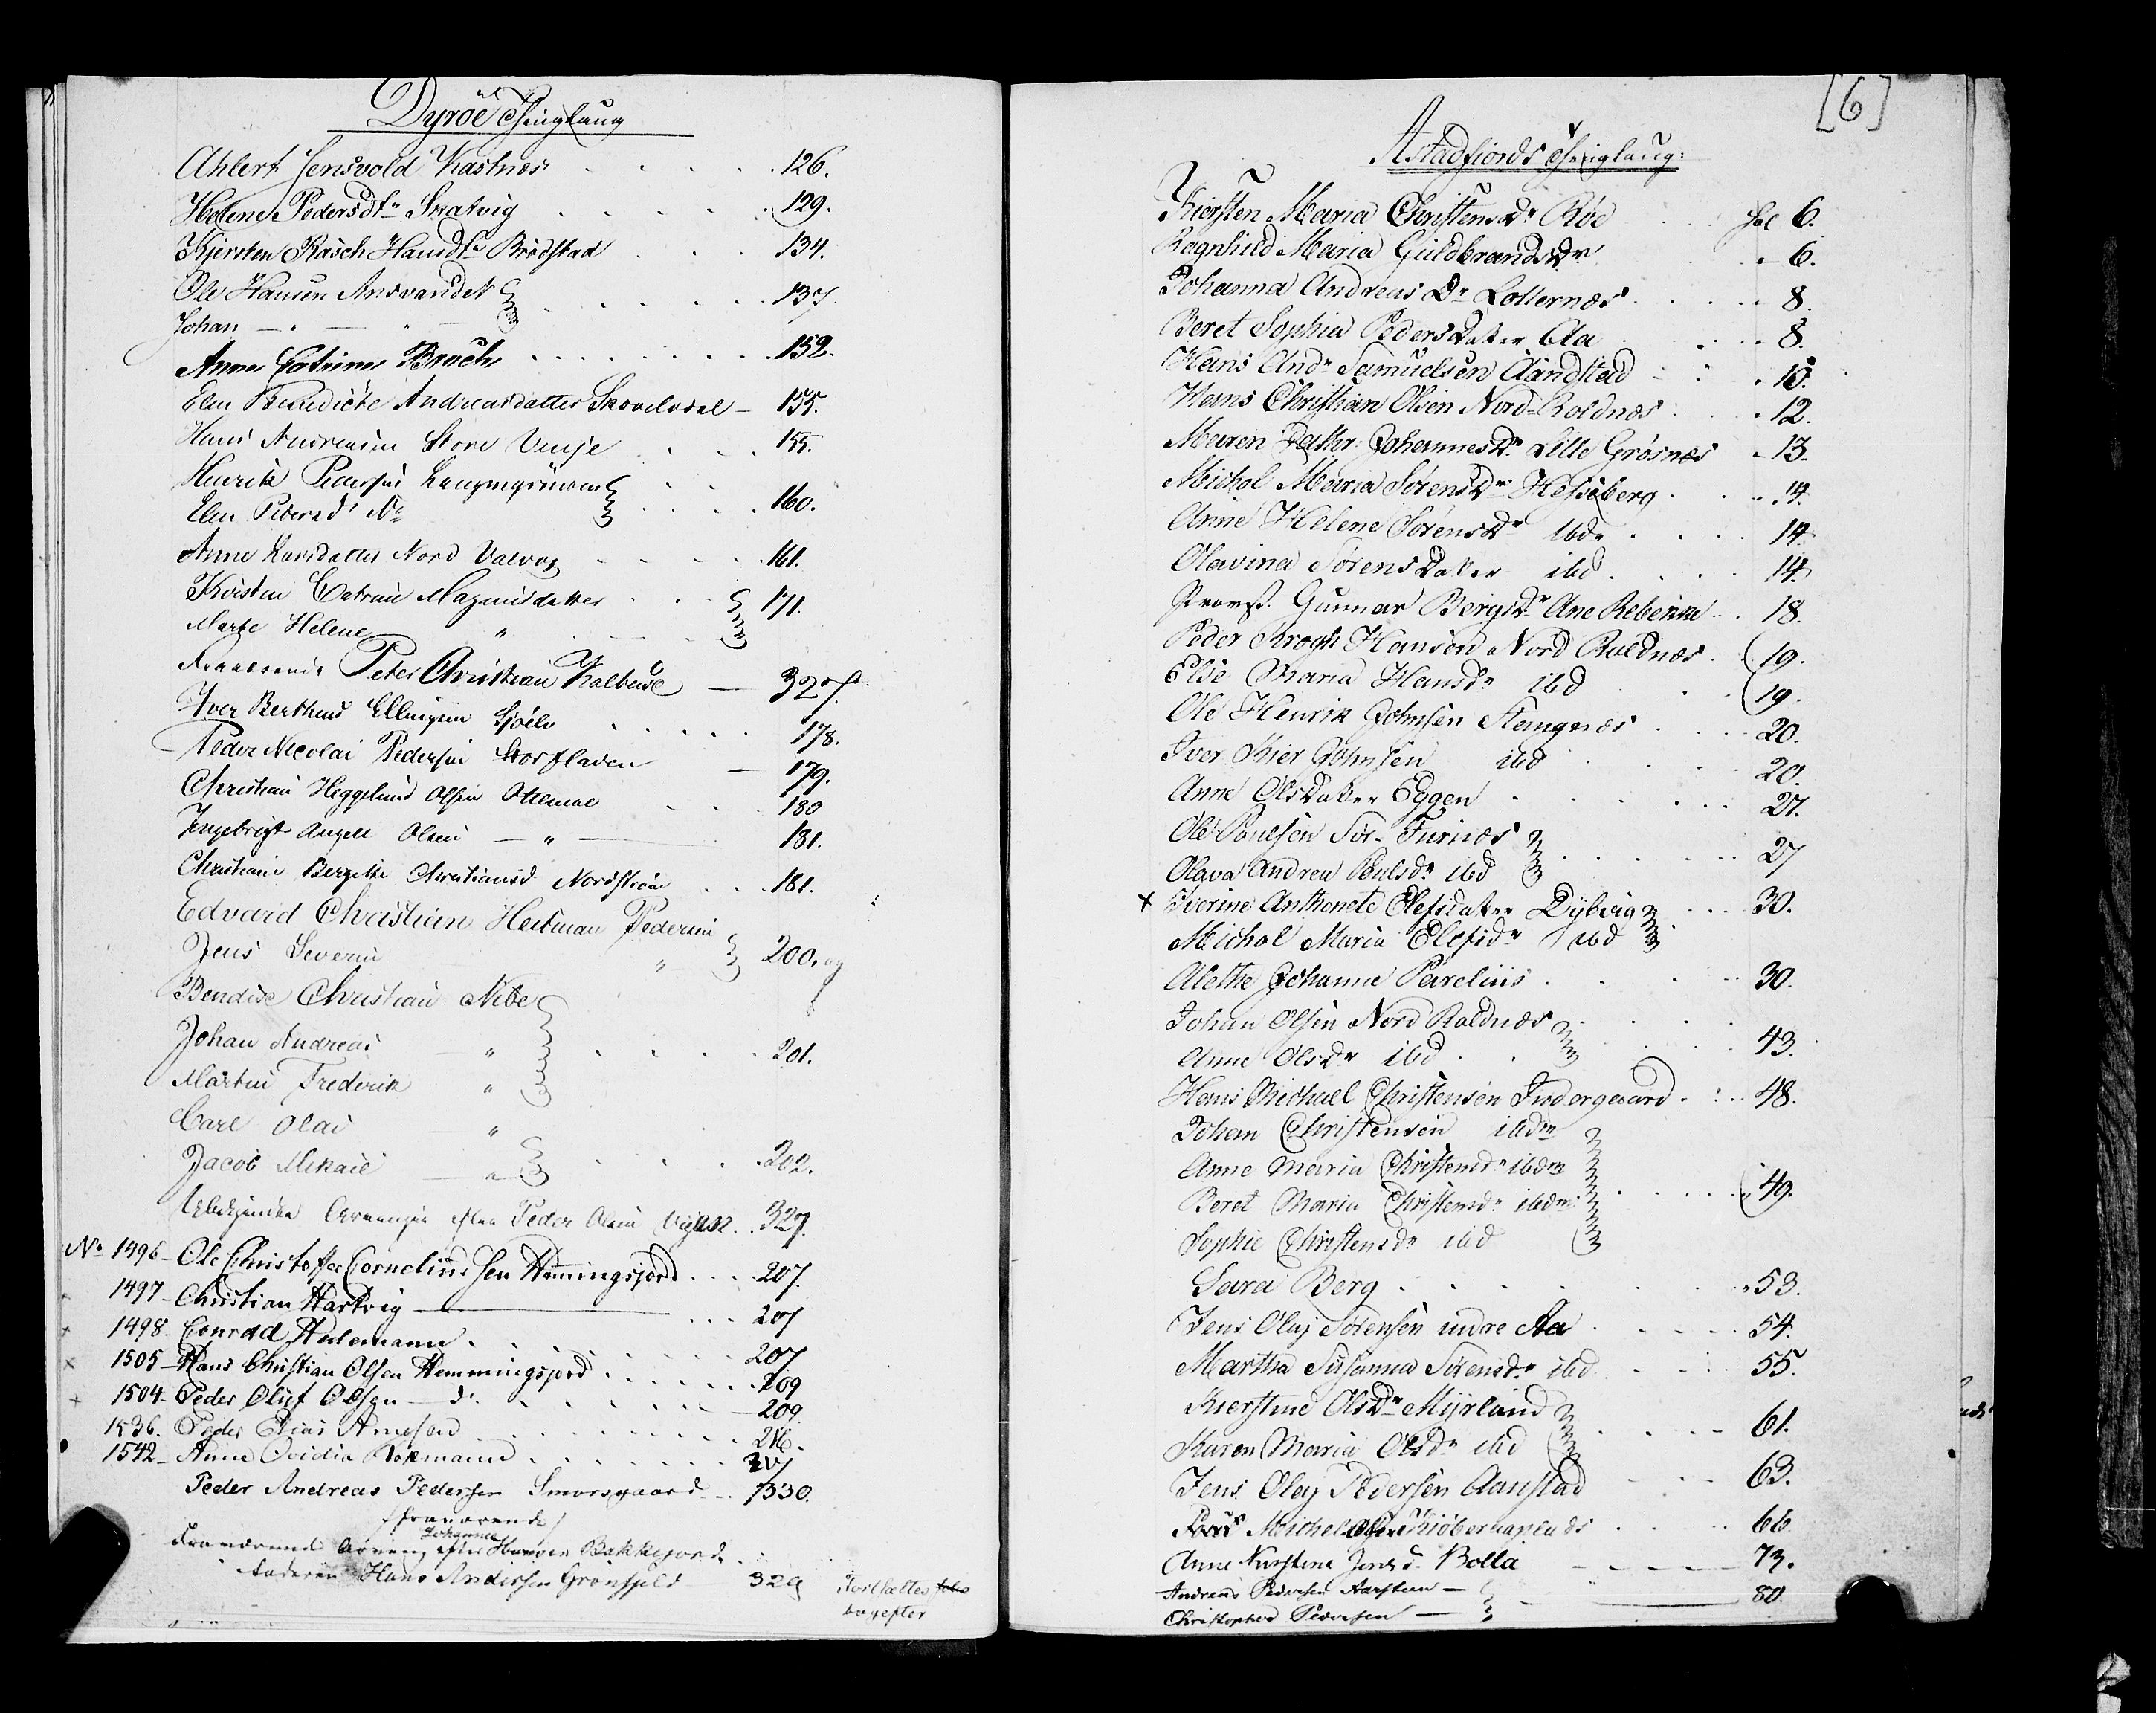 Dyröe Thinglaug
Ahlert Jensvold Kastnæs 126.
Helene Pedersdtr Skatvig 129.
Kjersten Rasch Hansdtr Brödstad 134.
Ole Hansen Ansvandet 137
Johan — " —
Anne Catrine Broch 152.
Elen Benedicte Andreasdatter Skovelvdal — 155.
Hans Andreasen Store Vinje 155.
Henrik Pedersen 160.
Elen Pedersd
Anne Larsdatter Nord 161.
Kirsten Catrine Magnusdatter 171.
Marte Helene "
Fraværende Peter Christian Kalbuse — 327.
Iver Bertheus Ellingsen Gjöelv 178.
Peder Nicolai Pedersen Storslaven — 179.
Christian Heggelund Olsen 180
Ingebrigt Angell Olsen — " — 181.
Christiane Bergitte Christiansd Nordström 181.
Edvard Christian Heitman Pedersen
Jens Severin " 200. og
Bendise Christian Nibe
Johan Andreas " 201.
Martin Frederik "
Carl Olai "
Jacob Mikael " 202.
Ubekjendte Arvinger efter Peder Olsen 327.
No 1496 – Ole Christoffer Corneliussen Hemmingsjord 207.
1497 – Christian Hartvig — 207
1498 – Conrad Hedemann 207.
1505 – Hans Christian Olsen Hemmingsjord 209
1504 – Peder Oluf Olsen — do 209.
1536. Peder Elias Arnesen 216.
1542 – Anne Ovidia Rokmann
Peder Andreas Pedersen Smorsgaard 330.
/fraværende/
Johannes
Fraværende Arving efter Hansen Bakkejord
Hans Andersen Grönfjeld 329 fortsættes
bagefter
[6]
Astadfiords Thinglaug:
Kiersten Maria Christensdr Röe fol 6.
Ragnhild Maria Guldbrandsdr 6.
Johanna Andreas Dr Lotternæs 8.
Beret Sophia Pedersdatter Aa 8.
Hans Andr Samuelsen Aandstad 10.
Hans Christian Olsen Nord-Roldnæs 12.
Maren Cathr. Johannesdr Lille Grösnæs 13.
Michol Maria Sörensdr Hesseberg 14.
Anne Helene Sörensdr ibd. 14.
Olavina Sörensdatter ibd. 14.
Provst. Gunnar Bergs Dr Ane Rebekka 18.
Peder Krogh Hansen Nord Roldnæs 19.
Else Maria Hansdr ibd 19.
Ole Henrik Johnsen Stangnæs 20.
Iver Kier Johnsen ibd 20.
Anne Olsdatter Eggen 27.
Ole Poulsen Sör-Furnæs 27
Olava Andrea Poulsdr ibd
x Sivrine Anthonete Elefsdatter Dybvig 30.
Michol Maria Elefsdr ibd
Alethe Johanna Parelius 30.
Johan Olsen Nord Roldnæs 43.
Anne Olsdr ibd
Hans Michael Christensen Indergaard 48.
Johan Christensen ibdm
Anne Maria Christensdr ibdm 49.
Beret Maria Christensdr ibdm
Sophie Christensdr ibd
Sara Berg 53.
Jens Olaj Sörensen indre Aa 54.
Martha Susanna Sörensdr ibd 55.
Kierstine Olsdr Myrland 61.
Karen Maria Olsdr ibd
Jens Olaj Pedersen Aanstad 63.
Michel Olsen Kiöbernaplads 66.
Anne Kirstine Jensd. Bolla 73.
Andreas Pedersen Aarsteen — 80.
Christopher Pedersen —